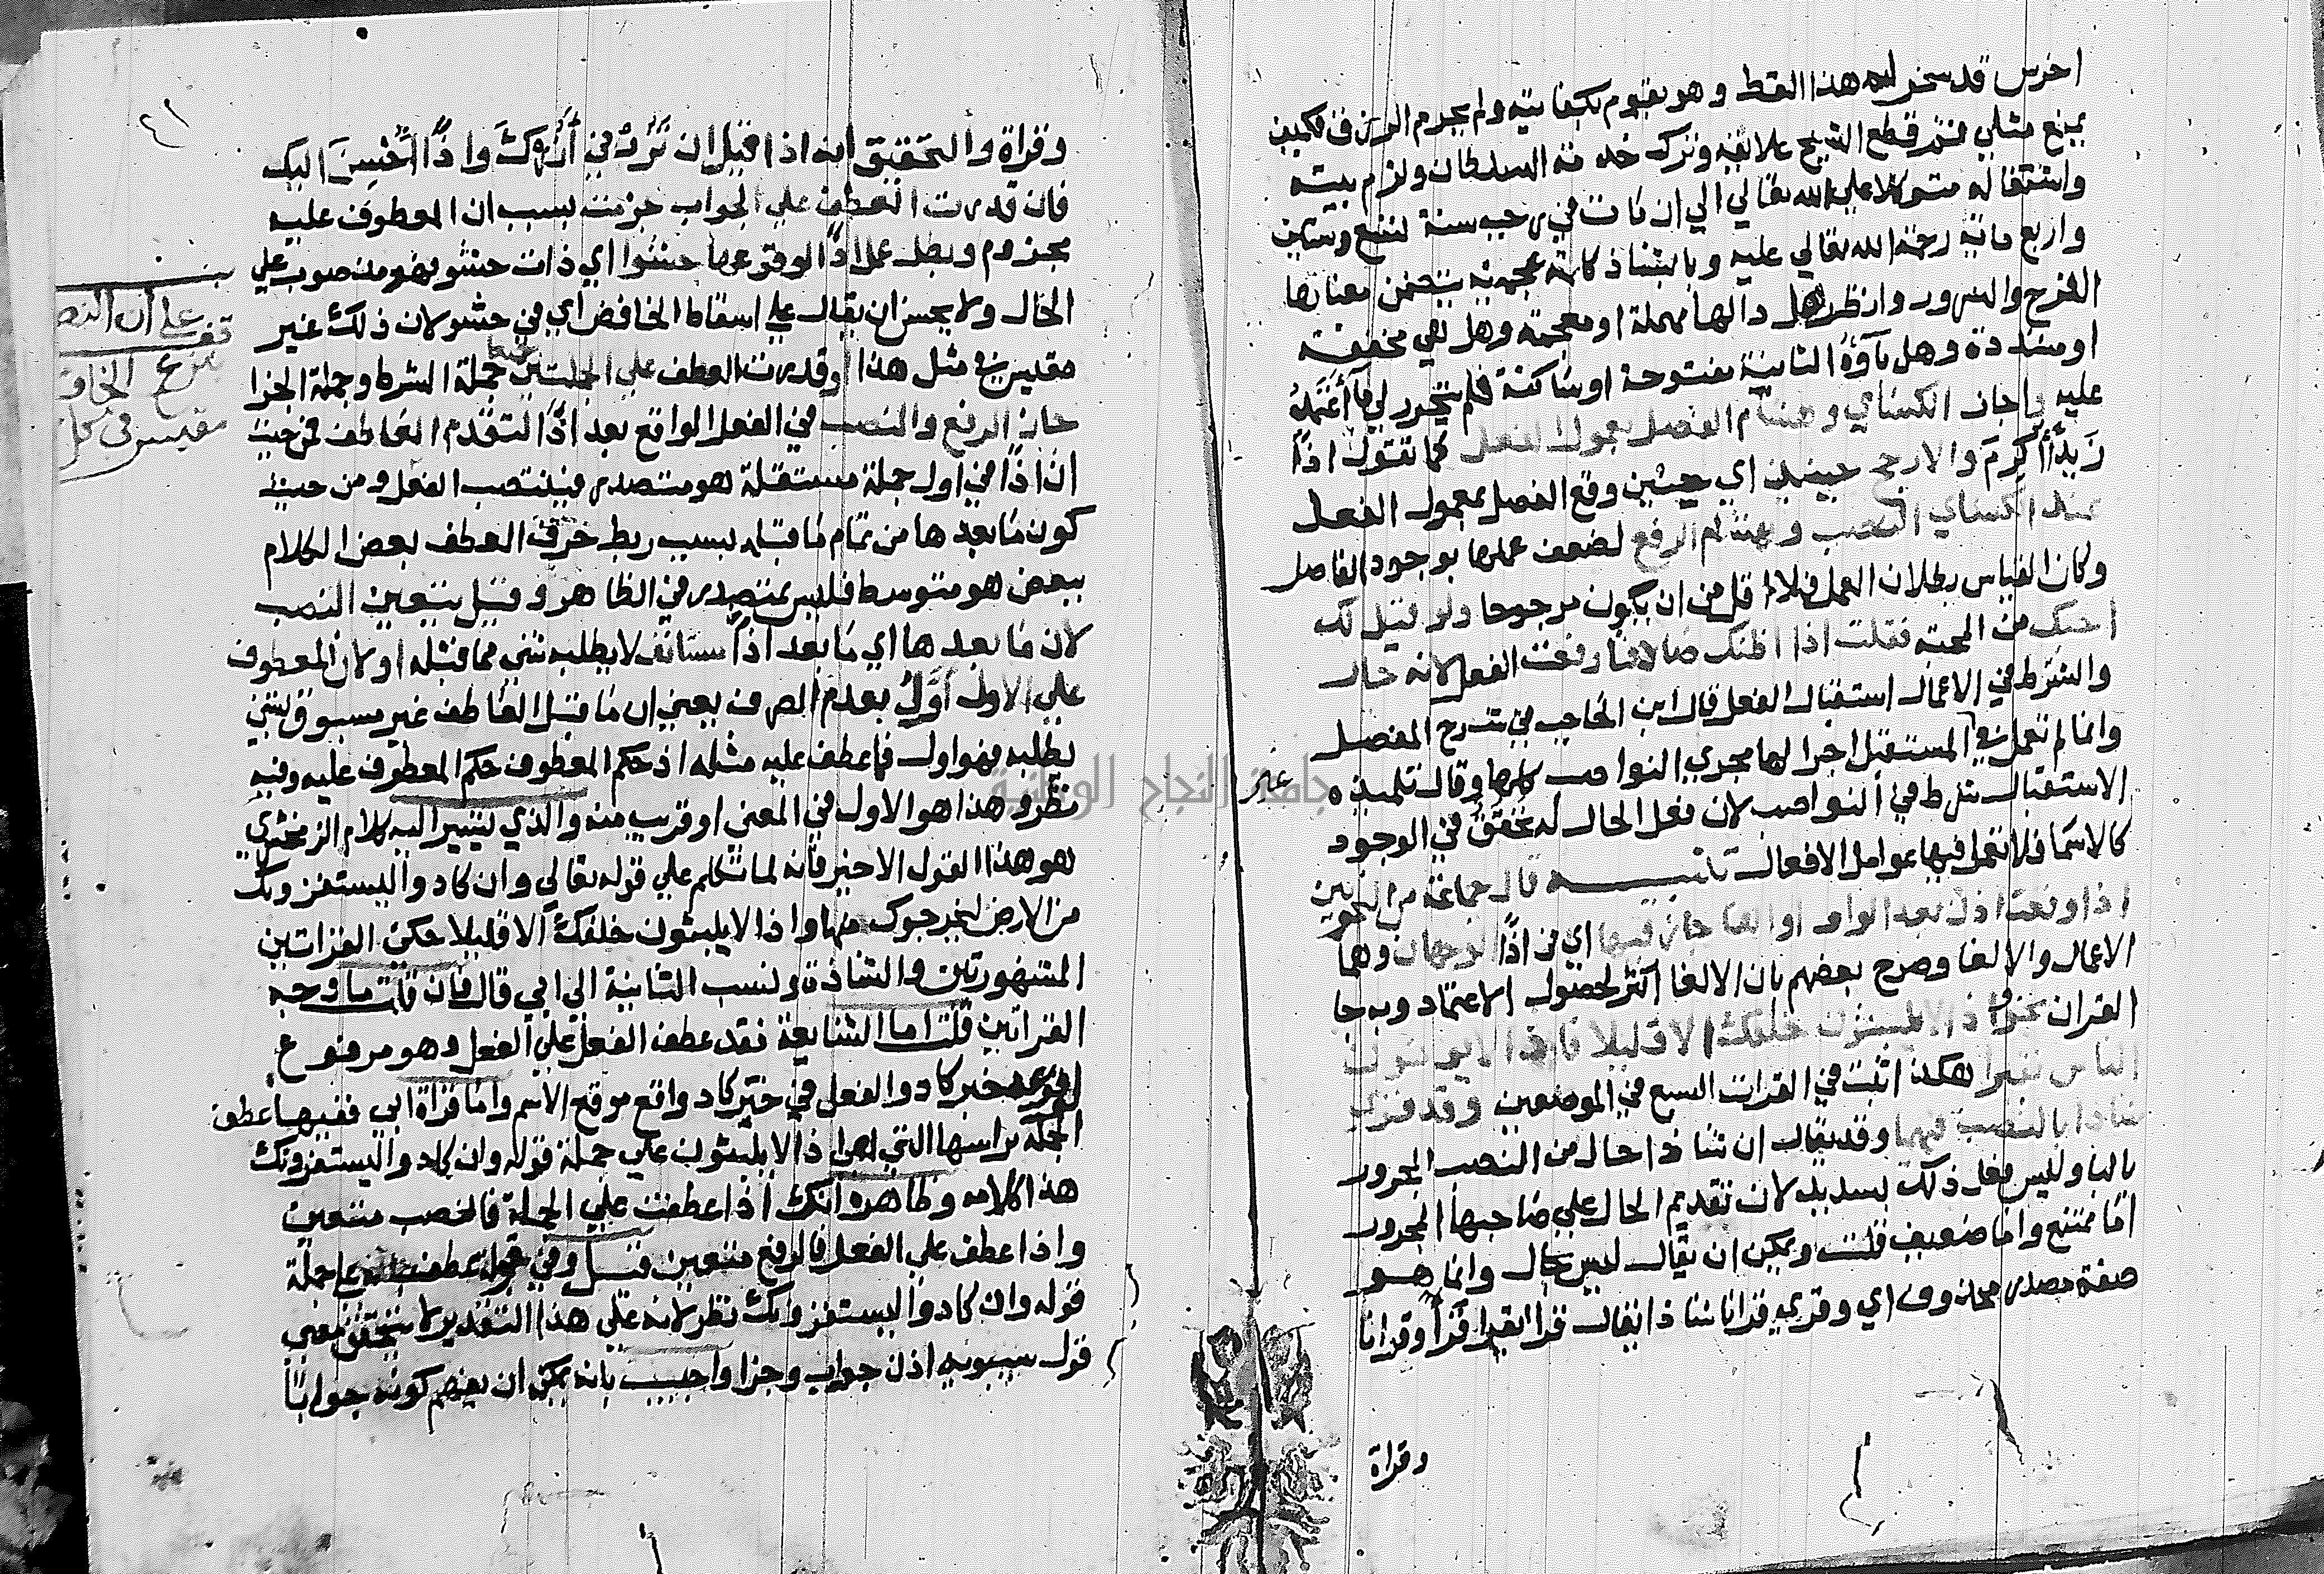 اخرس قد سخر له هذا القط وهو يقوم بكفايته ولم يحرم الرزق فكيف
يضيع مثلي فثم قطع الشيخ علائقه وترك خدمة السلطان ولزم بيته
واشتغاله متوكلا على الله تعالي الي ان مات في رجب سنة تسع وستين
واربع مائة رحمة الله تعالي عليه وبابشاذ كلمة عجمية يتضمن معناها
الفرح والسرور وانظر هل دالها مهملة او معجمة وهل هي مخففة
او مشددة وهل باؤه الثانية مفتوحة او ساكنة فلم يتحرر لي ما أعتمد
عليه واجاز الكسائي وهشام الفصل بمعمول الفعل كما تقول اذا
زيدا أكرم والارجح حينئذ اي حين وقع الفصل بمعمول الفعل
عند الكسائي النصب وهشام الرفع لضعف عملها بوجود الفاصل
وكان القياس بطلان العمل فلا اقل من ان يكون مرجوحا ولو قيل لك
احبك من المحبة فقلت اذا اظنك صادقا رفعت الفعل لانه حال
والشرط في الاعمال استقبال الفعل قال ابن الحاجب في شرح المفصل
وانما لم تعمل في المستقبل اجرا لها مجري النواصب كلها وقال تلميذه
الاستقبال شرط في النواصب لان فعل الحال له تحقق في الوجود
كالاسما فلا تعمل فيها عوامل الافعال تنبيه قال جماعة من النحويين
اذا وقعت اذن بعد الواو او الفا جاز فيها اي في اذا الوجهان وهما
الاعمال والالغا وصرح بعضهم بان الالغا اكثر لحصول الاعتماد وبه جا
القران نحو واذا لا يلبثون خلفك الا قليلا فاذا لا يوتون
الناس نقيرا هكذا اثبت في القرات السبع في الموضعين وقد قري
شاذا بالنصب فيهما وقد يقال ان شاذا حال من النصب المجرور
بالبا وليس فعل ذلك بسديد لان تقديم الحال علي صاحبها المجرور
اما ممتنع واما ضعيف قلت ويمكن ان يقال ليس بحال وانما هو
صفة مصدر محذوف اي وقري قرانا شاذا يقال قرا يقرا قرأ وقرانا
وقراة
٤١
وقراة والتحقيق انه اذا قيل ان تزرني أزرك واذا أحسن اليك
فان قدرت العطف علي الجواب جزمت بسبب ان المعطوف عليه
مجزوم وبطل عمل اذا لوقوعها حشوا اي ذات حشو فهو منصوب علي
الحال ولا يحسن ان يقال علي اسقاط الخافض اي في حشو لان ذلك غير
مقيس في مثل هذا او قدرت العطف علي الجملتين جملة الشرط وجملة الجزا
جاز الرفع والنصب في الفعل الواقع بعد اذا لتقدم العاطف فمن حيث
ان اذا في اول جملة مستقلة هو متصدر فينتصب الفعل ومن حيث
كون ما بعدها من تمام ما قبله بسبب ربط حرف العطف بعض الكلام
ببعض هو متوسط فليس بمتصدر في الظاهر وقيل يتعين النصب
لان ما بعدها اي ما بعد اذا مستانف لا يطلبه شي مما قبله او لان المعطوف
علي الاول أول بعدم الصرف يعني ان ما قبل العاطف غير مسبوق بشي
يطلبه فهو اول فما عطف عليه مثله اذ حكم المعطوف حكم المعطوف عليه وفيه
نظر وهذا هو الاول في المعني او قريب منه والذي يشير اليه كلام الزمخشري
هو هذا القول الاخير فانه لما تكلم علي قوله تعالي وان كادوا ليستفزونك
من الارض ليخرجوك منها واذا لا يلبثون خلفك الا قليلا حكي القراتين
المشهورتين والشاذة ونسب الثانية الي ابي قال فان قلت ما وجه
القراتين قلت اما الشايعة فقد عطف الفعل علي الفعل وهو مرفوع
لوقوعه خبر كاد والفعل في خبر كاد واقع موقع الاسم واما قراة ابي ففيها عطف
الجملة براسها التي اذا لا يلبثون علي جملة قوله وان كادوا ليستفزونك
هذا كلامه وظاهره انك اذا عطفت علي الجملة فالنصب متعين
واذا عطف علي الفعل فالرفع متعين قيل وفي قوله عطف علي جملة
قوله وان كادوا ليستفزونك نظر لانه علي هذا التقدير لا يتحقق معني
قول سيبويه اذن جواب وجزا واجيب بانه يمكن ان يفهم كونه جوابا
قف علي أن النصب
بنزع الخافض
مقيس في كل
جامعة النجاح الوطنية